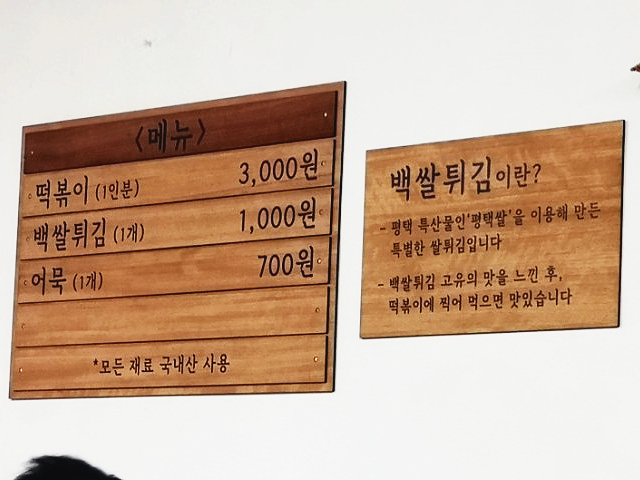 〈메뉴〉
떡볶이 (1인분) 3,000원
백쌀튀김 (1개) 1,000원
어묵 (1개) 700원
*모든 재료 국내산 사용
백쌀튀김이란?
- 평택 특산물인'평택쌀'을 이용해 만든
특별한 쌀튀김입니다
- 백쌀튀김 고유의 맛을 느낀 후,
떡볶이에 찍어 먹으면 맛있습니다